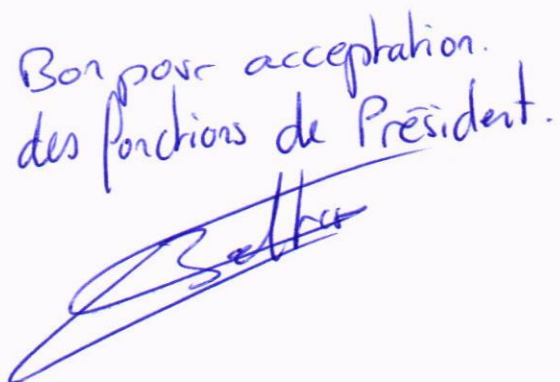 Bon pour acceptation.
des fonctions de Président.